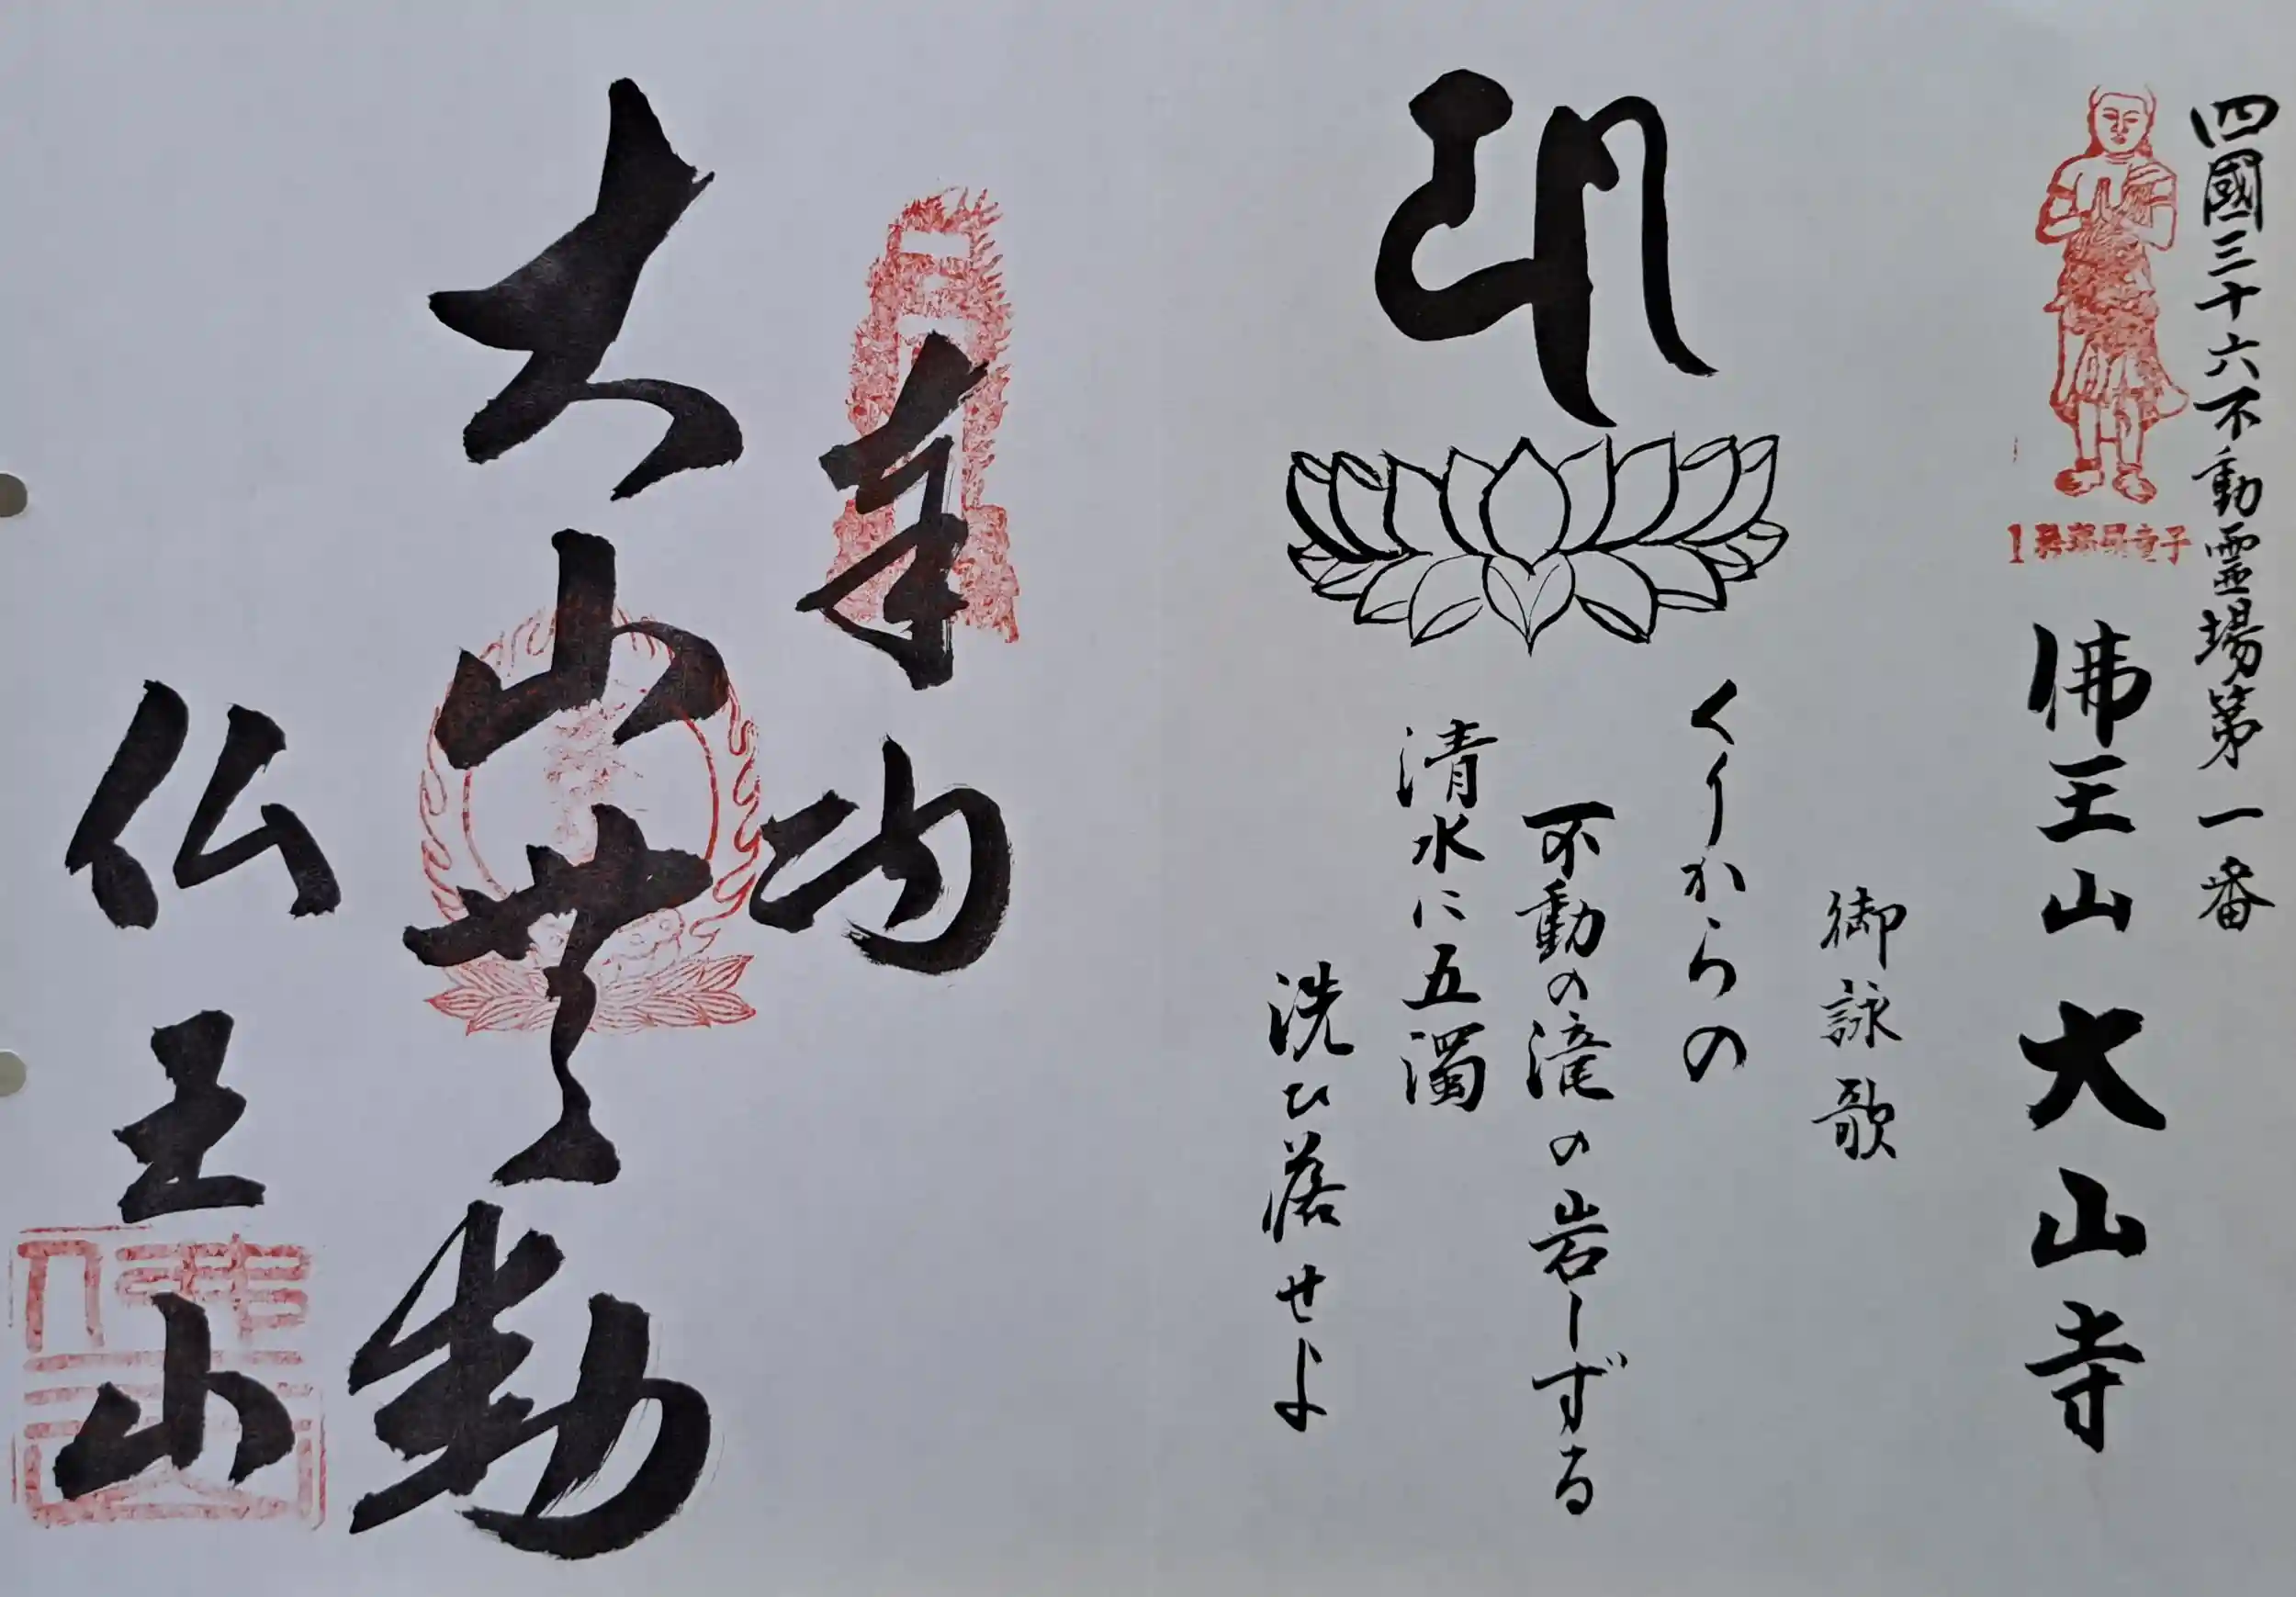 四國三十六不動霊場第一番
童子
佛王山大山寺
御詠歌
くりからの
不動の滝の岩しずる
清水に五濁
洗ひ落せよ
奉納
大山無動
仏王山